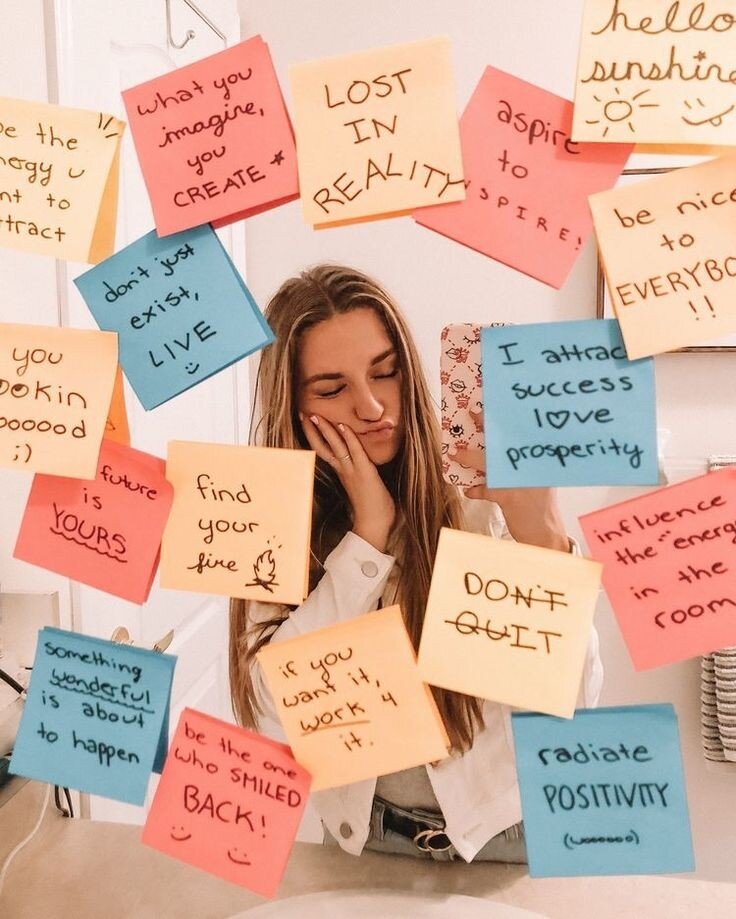 hello
sunshine
what you
imagine,
you
CREATE
LOST
IN
REALITY
aspire
to
be the
u
to
be nice
to
!!
don't just
exist,
LIVE
I
success
love
prosperity
you
;)
future
is
YOURS
find
your
fire
influence
the
in the
room
DON'T
QUIT
something
wonderful
is about
to happen
if you
want it,
work 4
it.
be the one
who SMILED
BACK!
radiate
POSITIVITY
(woooooo)